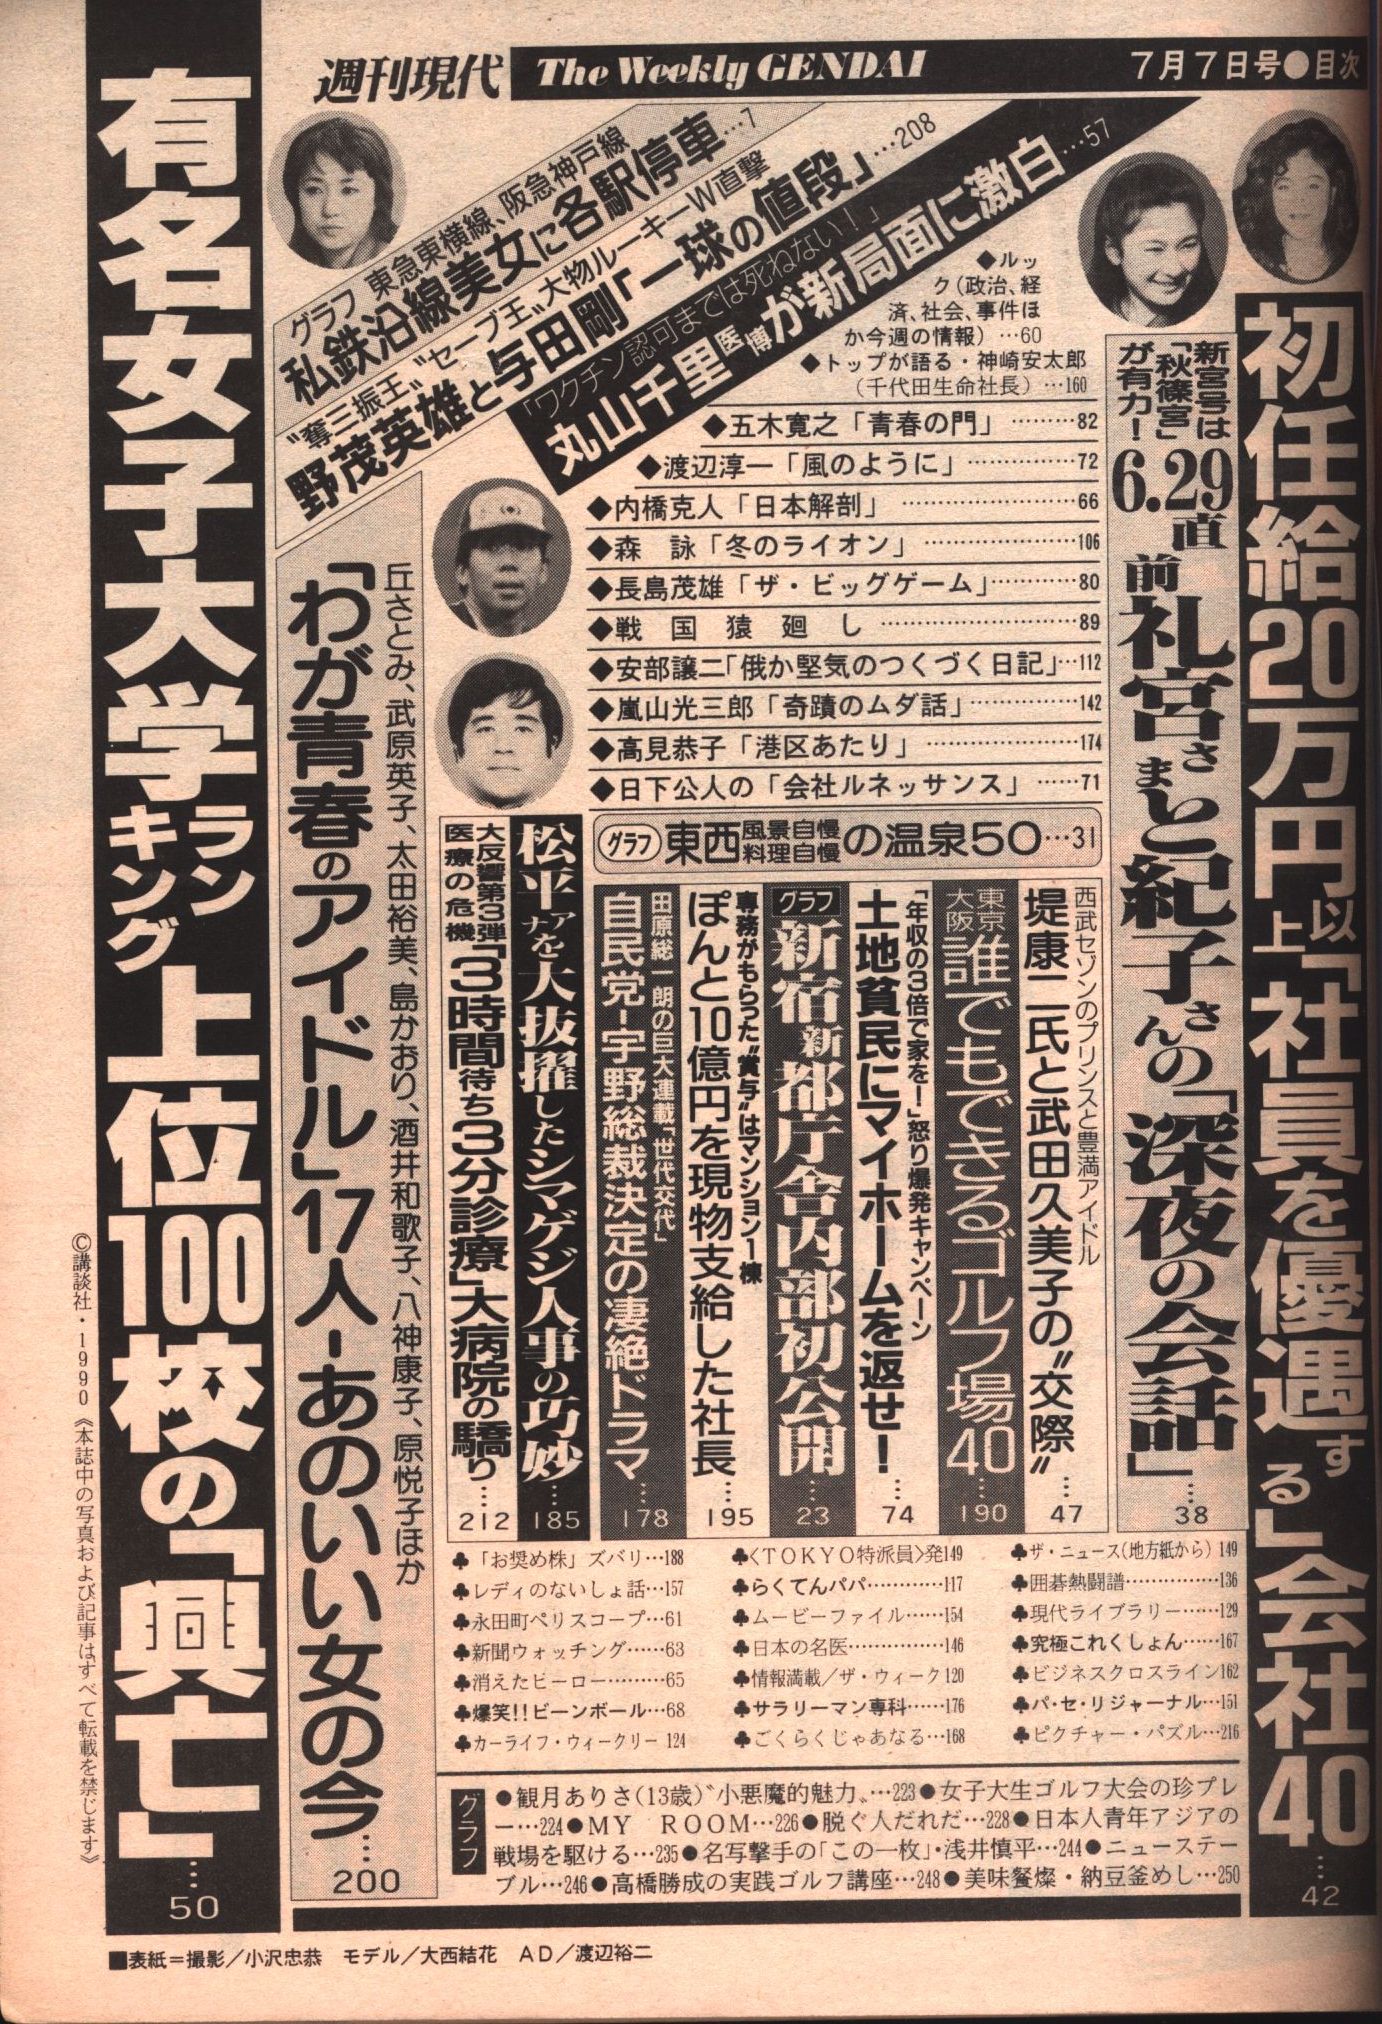 週刊現代
The Weekly GENDAI
7月7日号●目次
初任給20万円以上「社員を優遇する」会社40…42
新宮号は「秋篠宮」が有力!
6.29直前 礼宮さまと紀子さんの「深夜の会話」…38
グラフ 東急東横線、阪急神戸線
私鉄沿線美女に各駅停車…7
“奪三振王”“セーブ王”大物ルーキーW直撃
野茂英雄と与田剛「一球の値段」…208
「ワクチン認可までは死ねない!」
丸山千里医博が新局面に激白…57
◆ルック(政治、経済、社会、事件ほか今週の情報)…60
◆トップが語る・神崎安太郎
(千代田生命社長)…160
◆五木寛之「青春の門」…82
◆渡辺淳一「風のように」…72
◆内橋克人「日本解剖」…66
◆森 詠「冬のライオン」…106
◆長島茂雄「ザ・ビッグゲーム」…80
◆戦国猿廻し…89
◆安部譲二「俄か堅気のつくづく日記」…112
◆嵐山光三郎「奇蹟のムダ話」…142
◆高見恭子「港区あたり」…174
◆日下公人の「会社ルネッサンス」…71
グラフ 東西風景自慢料理自慢の温泉50…31
西武セゾンのプリンスと豊満アイドル
堤康二氏と武田久美子の“交際”…47
東京大阪 誰でもできるゴルフ場40…190
「年収の3倍で家を!」怒り爆発キャンペーン
土地貧民にマイホームを返せ!…74
グラフ 新宿新都庁舎内部初公開…23
専務がもらった“賞与”はマンション1棟
ぽんと10億円を現物支給した社長…195
田原総一朗の巨大連載「世代交代」
自民党!宇野総裁決定の凄絶ドラマ…178
松平アナを大抜擢したシマゲジ人事の巧妙…185
大反響第3弾 医療の危機
「3時間待ち3分診療」大病院の驕り…212
丘さとみ、武原英子、太田裕美、島かおり、酒井和歌子、八神康子、原悦子ほか
「わが青春のアイドル」17人―あのいい女の今…200
有名女子大学ランキング上位100校の「興亡」…50
♣ザ・ニュース(地方紙から)149
♣囲碁熱闘譜…136
♣現代ライブラリー…129
♣究極これくしょん…167
♣ビジネスクロスライン162
♣パ・セ・リジャーナル…151
♣ピクチャー・パズル…216
♣〈TOKYO特派員〉発149
♣らくてんパパ…117
♣ムービーファイル…154
♣日本の名医…146
♣情報満載/ザ・ウィーク120
♣サラリーマン専科…176
♣ごくらくじゃあなる…168
♣「お奨め株」ズバリ…188
♣レディのないしょ話…157
♣永田町ペリスコープ…61
♣新聞ウォッチング…63
♣消えたヒーロー…65
♣爆笑!!ビーンボール…68
♣カーライフ・ウィークリー 124
グラフ
●観月ありさ(13歳)“小悪魔的魅力”…223●女子大生ゴルフ大会の珍プレ
ー…224●MY ROOM…226●脱ぐ人だれだ…228●日本人青年アジアの
戦場を駆ける…235●名写撃手の「この一枚」・浅井慎平…244●ニューステー
ブル…246●高橋勝成の実践ゴルフ講座…248●美味餐燦・納豆釜めし…250
©講談社・1990《本誌中の写真および記事はすべて転載を禁じます》
■表紙=撮影/小沢忠恭 モデル/大西結花 AD/渡辺裕二